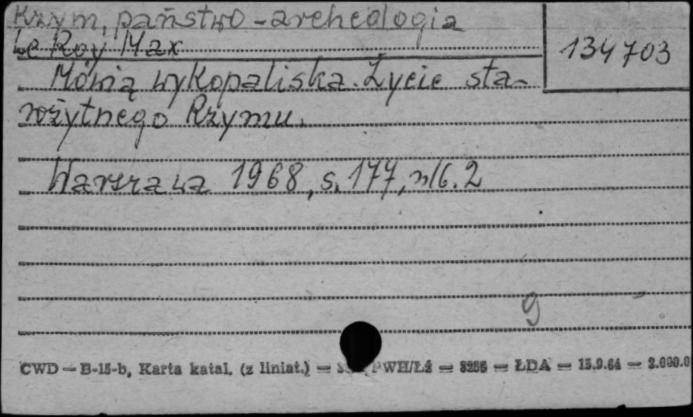 Rzym, państwo - archeologia
Le Roy Max
134703
Mówią wykopaliska. Życie sta-
rożytnego Rzymu.
Warszawa 1968, s. 177, nlb. 2
9
CWD — B-15-b, Karta katal. (z liniat.) — PWH/Łź — 3256 — ŁDA — 15.9.64 — 2.000.0